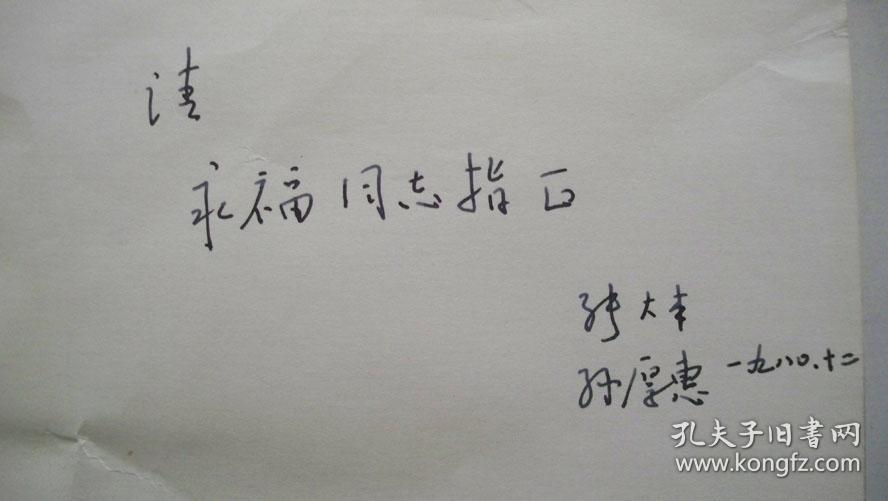 请
永福同志指正
张大丰
孙厚惠 一九八〇.十二
孔夫子旧書网
www.kongfz.com